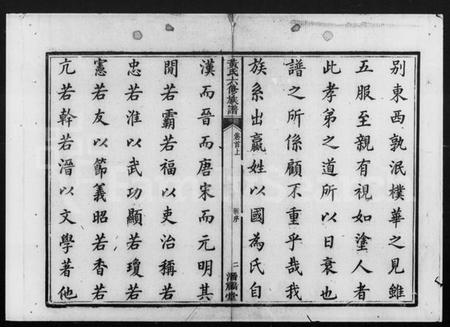 别東西孰泯樸華之見雖
五服至親有視如塗人者
此孝弟之道所以日衰也
譜之所係顧不重乎哉我
族系出嬴姓以國為氏自
黃氏六修族譜
卷首上
序
二
堂
漢而晉而唐宋而元明其
間若霸若福以吏治稱若
忠若淮以武功顯若瓊若
憲若友以節義昭若香若
亢若幹若溍以文學著他